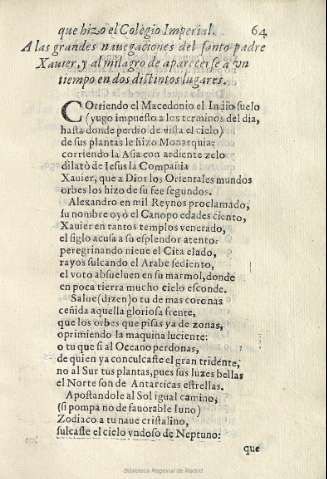 que hizo el Colegio Imperial. 64
A las grandes nauegaciones del santo padre
Xauier, y al milagro de aparecerse à vn
tiempo en dos distintos lugares.
COrriendo el Macedonio el Indio suelo
(yugo impuesto a los terminos del dia,
hasta donde perdio de vista el cielo)
de sus plantas le hizo Monarquia:
corriendo la Asia con ardiente zelo
dilatò de Iesus la Compañia
Xauier, que a Dios los Orientales mundos
orbes los hizo de su fee segundos.
Alexandro en mil Reynos proclamado,
su nombre oyò el Canopo edades ciento,
Xauier en tantos templos venerado,
el siglo acusa a su esplendor atento:
peregrinando nieue el Cita elado,
rayos sulcando el Arabe sediento,
el voto absueluen en su marmol, donde
en poca tierra mucho cielo esconde.
Salue (dizen) o tu de mas coronas
ceñida aquella gloriosa frente,
que los orbes que pisas ya de zonas,
oprimiendo la maquina luciente:
o tu que si al Oceano perdonas,
de quien ya conculcaste el gran tridente,
no al Sur tus plantas, pues sus luzes bellas
el Norte son de Antarticas estrellas.
Apostandole al Sol igual camino,
(si pompa no de fauorable Iuno)
Zodiaco a tu naue cristalino,
sulcaste el cielo vndoso de Neptuno:
que
Biblioteca Regional de Madrid